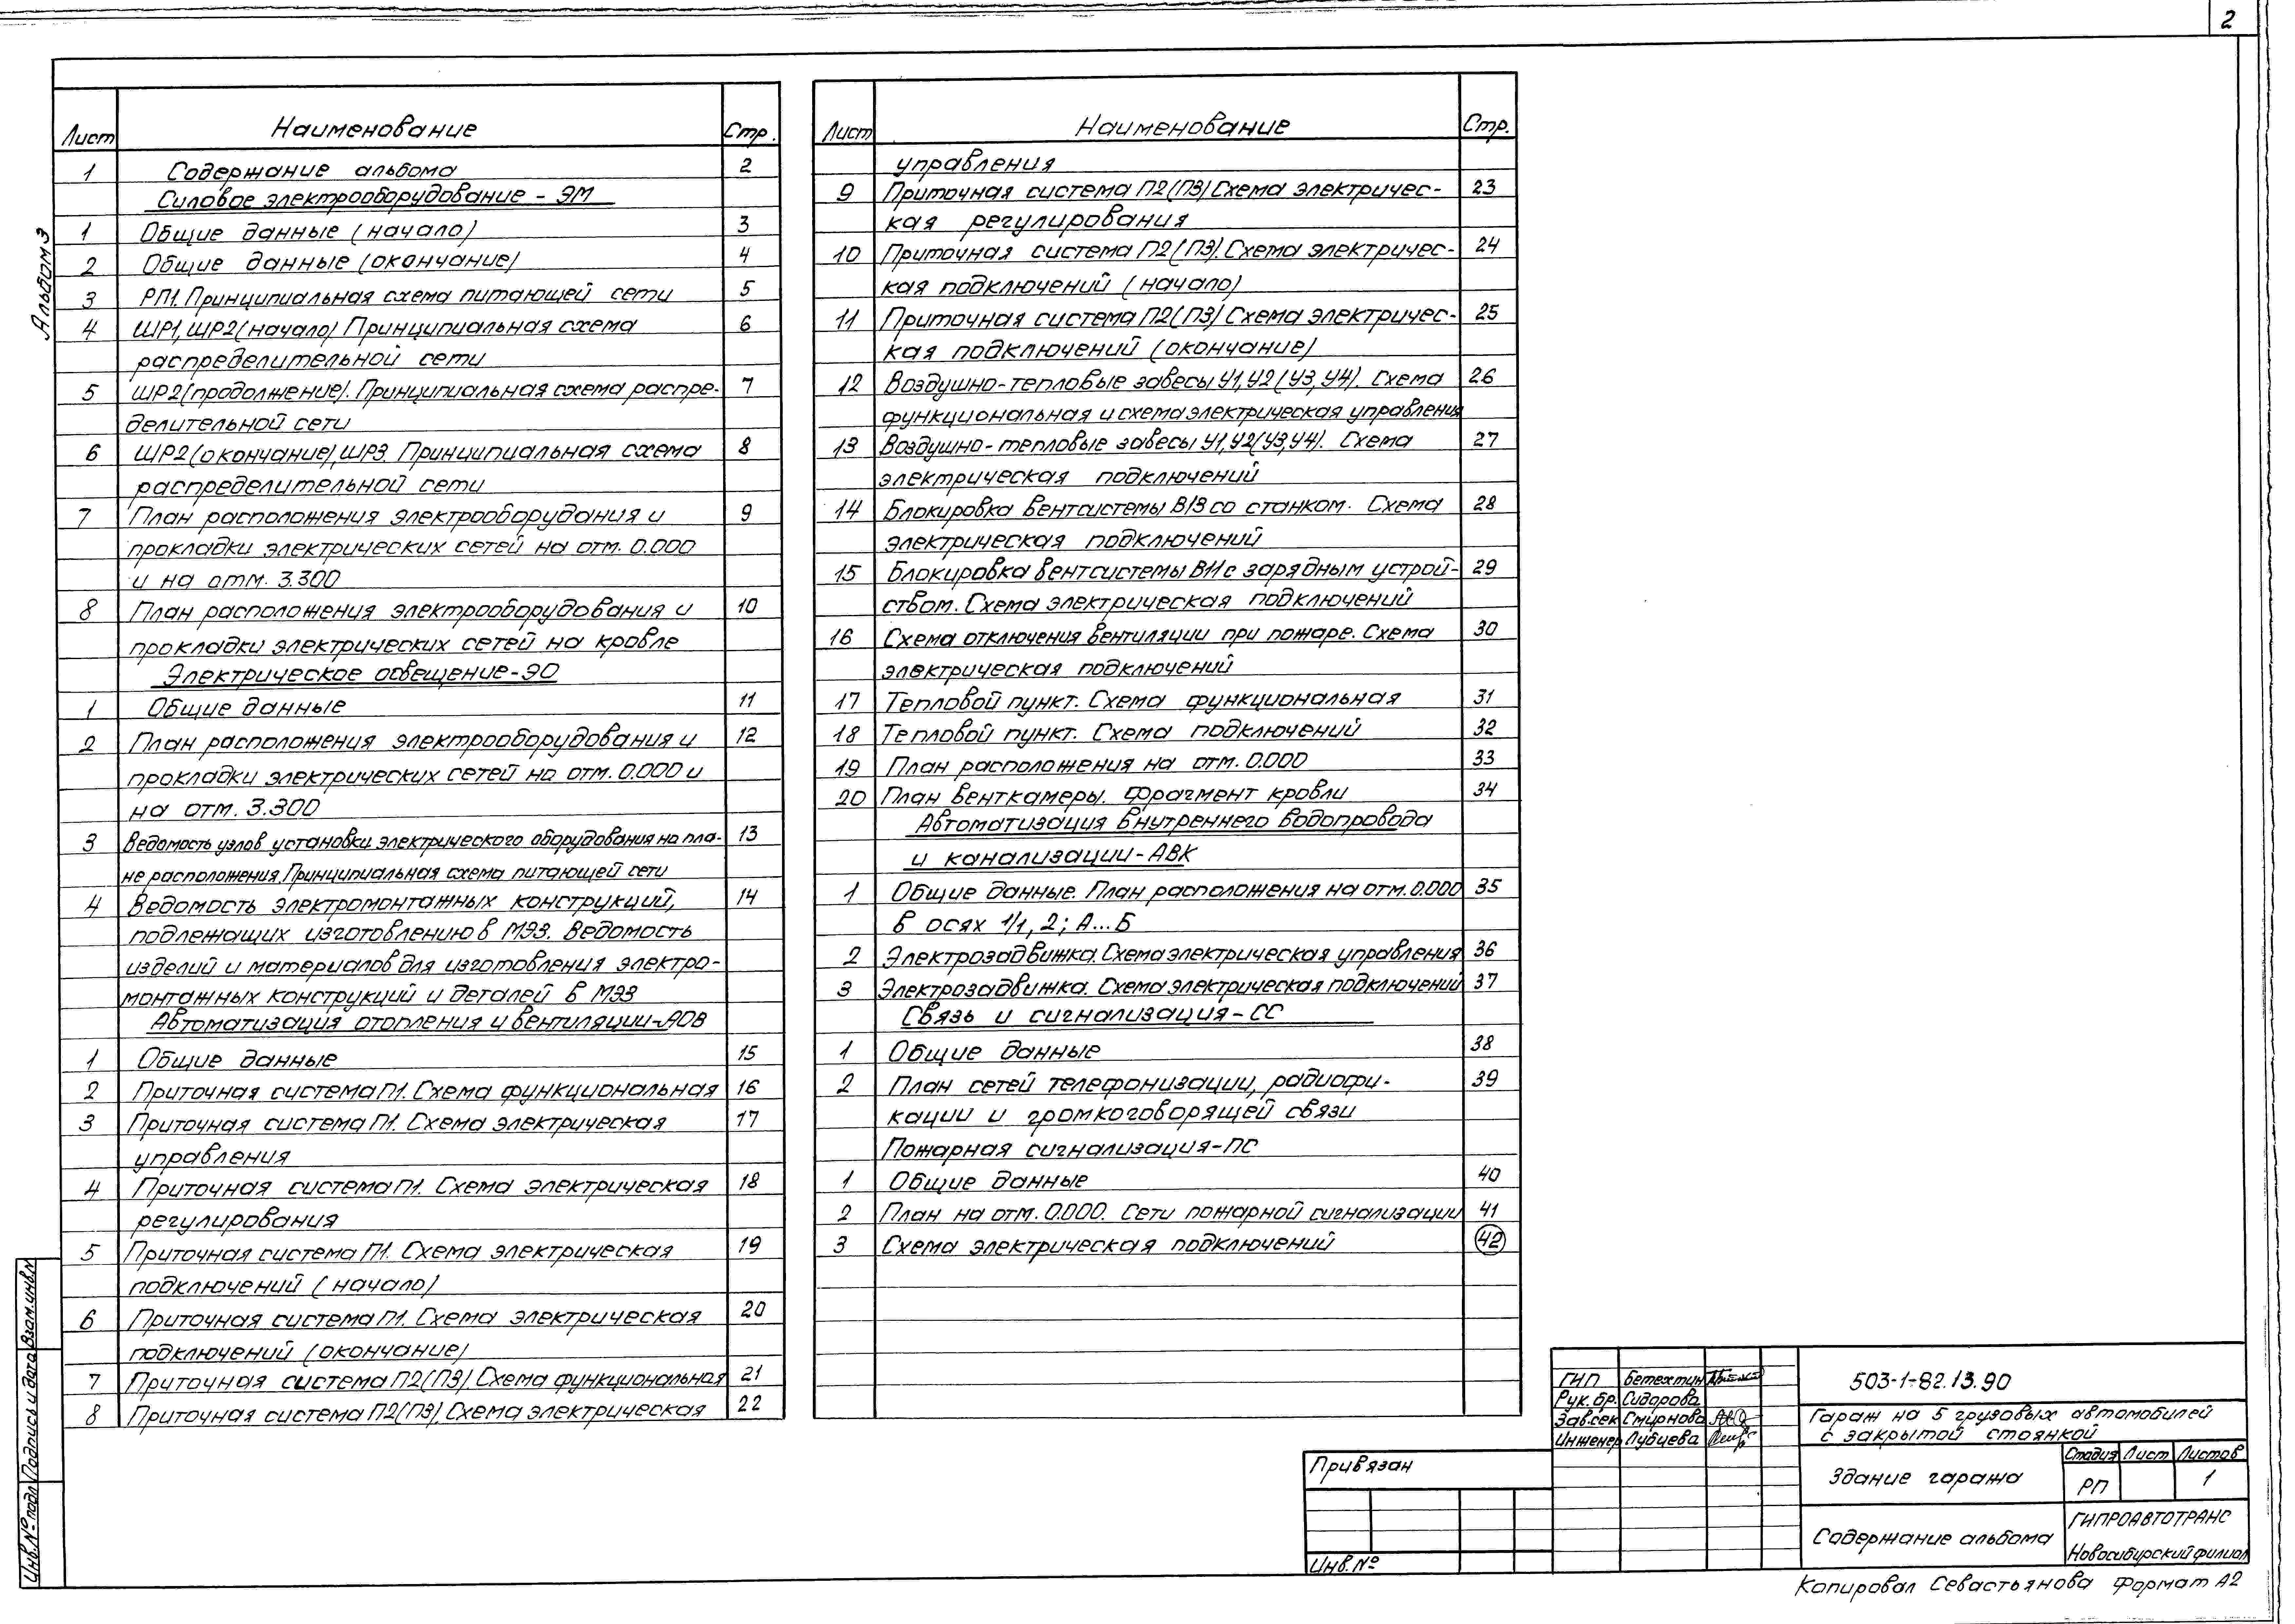 2
Альбом 3
Лист Наименование Стр.
1 Содержание альбома 2
Силовое электрооборудование - ЭМ
1 Общие данные (начало) 3
2 Общие данные (окончание) 4
3 РП1. Принципиальная схема питающей сети 5
4 ШР1, ШР2 (начало) Принципиальная схема 6
распределительной сети
5 ШР2 (продолжение). Принципиальная схема распре- 7
делительной сети
6 ШР2 (окончание), ШР3. Принципиальная схема 8
распределительной сети
7 План расположения электрооборудания и 9
прокладки электрических сетей на отм. 0.000
и на отм. 3.300
8 План расположения электрооборудования и 10
прокладки электрических сетей на кровле
Электрическое освещение-ЭО
1 Общие данные 11
2 План расположения электрооборудования и 12
прокладки электрических сетей на отм. 0.000 и
на отм. 3.300
3 Ведомость узлов установки электрического оборудования на пла- 13
не расположения. Принципиальная схема питающей сети
4 Ведомость электромонтажных конструкций, 14
подлежащих изготовлению в МЭЗ. Ведомость
изделий и материалов для изготовления электро-
монтажных конструкций и деталей в МЭЗ
Автоматизация отопления и вентиляции-АОВ
1 Общие данные 15
2 Приточная система П1. Схема функциональная 16
3 Приточная система П1. Схема электрическая 17
управления
4 Приточная система П1. Схема электрическая 18
регулирования
5 Приточная система П1. Схема электрическая 19
подключений (начало)
6 Приточная система П1. Схема электрическая 20
подключений (окончание)
7 Приточная система П2(П3). Схема функциональная 21
8 Приточная система П2(П3). Схема электрическая 22
Лист Наименование Стр.
управления
9 Приточная система П2(П3) Схема электричес- 23
кая регулирования
10 Приточная система П2(П3). Схема электричес- 24
кая подключений (начало)
11 Приточная система П2(П3) Схема электричес- 25
кая подключений (окончание)
12 Воздушно-тепловые завесы У1,У2 (У3,У4). Схема 26
функциональная и схема электрическая управления
13 Воздушно-тепловые завесы У1,У2(У3,У4). Схема 27
электрическая подключений
14 Блокировка вентсистемы В13 со станком. Схема 28
электрическая подключений
15 Блокировка вентсистемы В11 с зарядным устрой- 29
ством. Схема электрическая подключений
16 Схема отключения вентиляции при пожаре. Схема 30
электрическая подключений
17 Тепловой пункт. Схема функциональная 31
18 Тепловой пункт. Схема подключений 32
19 План расположения на отм. 0.000 33
20 План венткамеры. Фрагмент кровли 34
Автоматизация внутреннего водопровода
и канализации-АВК
1 Общие данные. План расположения на отм. 0.000 35
в осях 1/1, 2; А...Б
2 Электрозадвижка. Схема электрическая управления 36
3 Электрозадвижка. Схема электрическая подключений 37
Связь и сигнализация-СС
1 Общие данные 38
2 План сетей телефонизации, радиофи- 39
кации и громкоговорящей связи
Пожарная сигнализация-ПС
1 Общие данные 40
2 План на отм. 0.000. Сети пожарной сигнализации 41
3 Схема электрическая подключений 42
Инв.№ подл Подпись и дата Взам.инв.№
Привязан
Инв.№
ГИП Бетехтин
Рук.бр. Сидорова
Зав.сек Смирнова
Инженер Лубцева
503-1-82.13.90
Гараж на 5 грузовых автомобилей
с закрытой стоянкой
Здание гаража
Стадия Лист Листов
РП 1
Содержание альбома
ГИПРОАВТОТРАНС
Новосибирский филиал
Копировал Севастьянова Формат А2